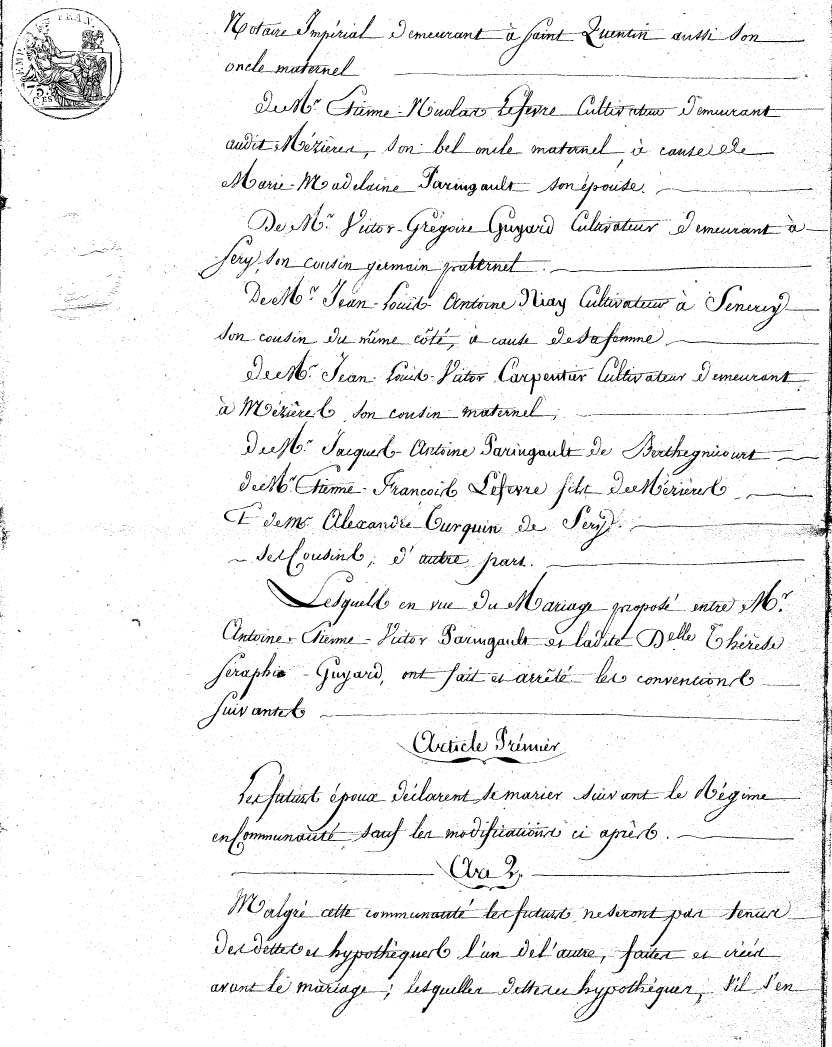 EMP. FRAN.
75
C.ES
Notaire Impérial demeurant à Saint Quentin aussi son
oncle maternel
de Mr. Etienne-Nicolas Lefevre Cultivateur demeurant
audit Mézières, son bel oncle maternel, à cause de
Marie-Madelaine Paringault son épouse.
De Mr. Victor-Grégoire Guyard Cultivateur demeurant à
Sery, son cousin germain paternel.
De Mr. Jean-Louis-Antoine Niay Cultivateur à Senercy
son cousin du même côté, à cause de sa femme
de Mr. Jean-Louis-Victor Carpentier Cultivateur demeurant
à Mézières son cousin maternel,
de Mr. Jacques-Antoine Paringault de Berthegnicourt
de Mr. Etienne-François Lefevre fils de Mézières
Et de mr. Alexandre Turquin de Sery.
ses Cousins, d'autre part.
Lesquels en vue du Mariage proposé entre Mr.
Antoine-Etienne-Victor Paringault et ladite Delle Thérèse
Séraphie-Guyard, ont fait et arrêté les conventions
suivantes
Article Prémier
Les futurs époux déclarent se marier suivant le Régime
en Communauté, sauf les modifications ci après.
Art 2.
Malgré cette communauté les futurs ne seront pas tenus
des dettes et hypothèques l'un de l'autre, faites et créés
avant le mariage; lesquelles dettes et hypothèques, s'il s'en